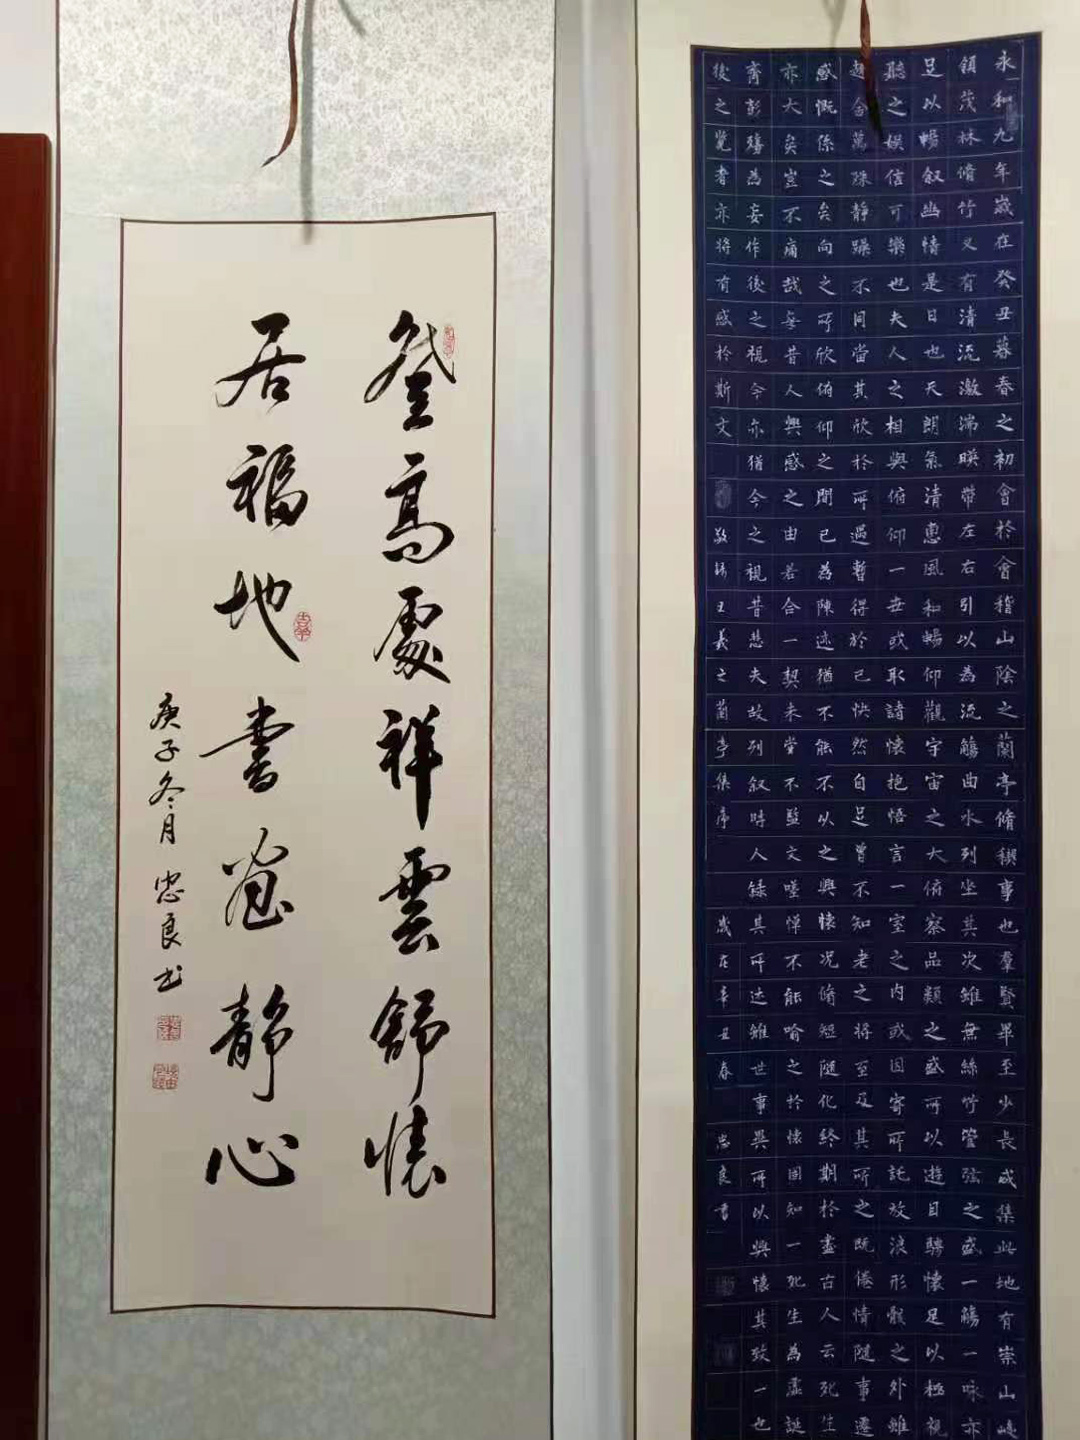 登高處祥雲舒懷
居福地書畫靜心
庚子冬月 忠良书
永和九年歲在癸丑暮春之初會於會稽山陰之蘭亭脩禊事也羣賢畢至少長咸集此地有崇山峻
領茂林脩竹又有清流激湍暎帶左右引以為流觴曲水列坐其次雖無絲竹管弦之盛一觴一咏亦
足以暢叙幽情是日也天朗氣清惠風和暢仰觀宇宙之大俯察品類之盛所以遊目騁懷足以極視
聽之娱信可樂也夫人之相與俯仰一世或取諸懷抱悟言一室之内或因寄所託放浪形骸之外雖
趣舍萬殊靜躁不同當其欣於所遇暫得於己快然自足曾不知老之將至及其所之既倦情隨事遷
感慨係之矣向之所欣俯仰之間已為陳迹猶不能不以之興懷况脩短隨化終期於盡古人云死生
亦大矣豈不痛哉每昔人興感之由若合一契未嘗不臨文嗟悼不能喻之於懷固知一死生為虛誕
齊彭殤為妄作後之視今亦猶今之視昔悲夫故列叙時人録其所述雖世事異所以興懷其致一也
後之覽者亦將有感於斯文 敬錄王羲之蘭亭集序 歲在辛丑春 忠良書